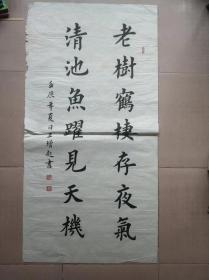 老樹鶴棲存夜氣
清池魚躍見天機